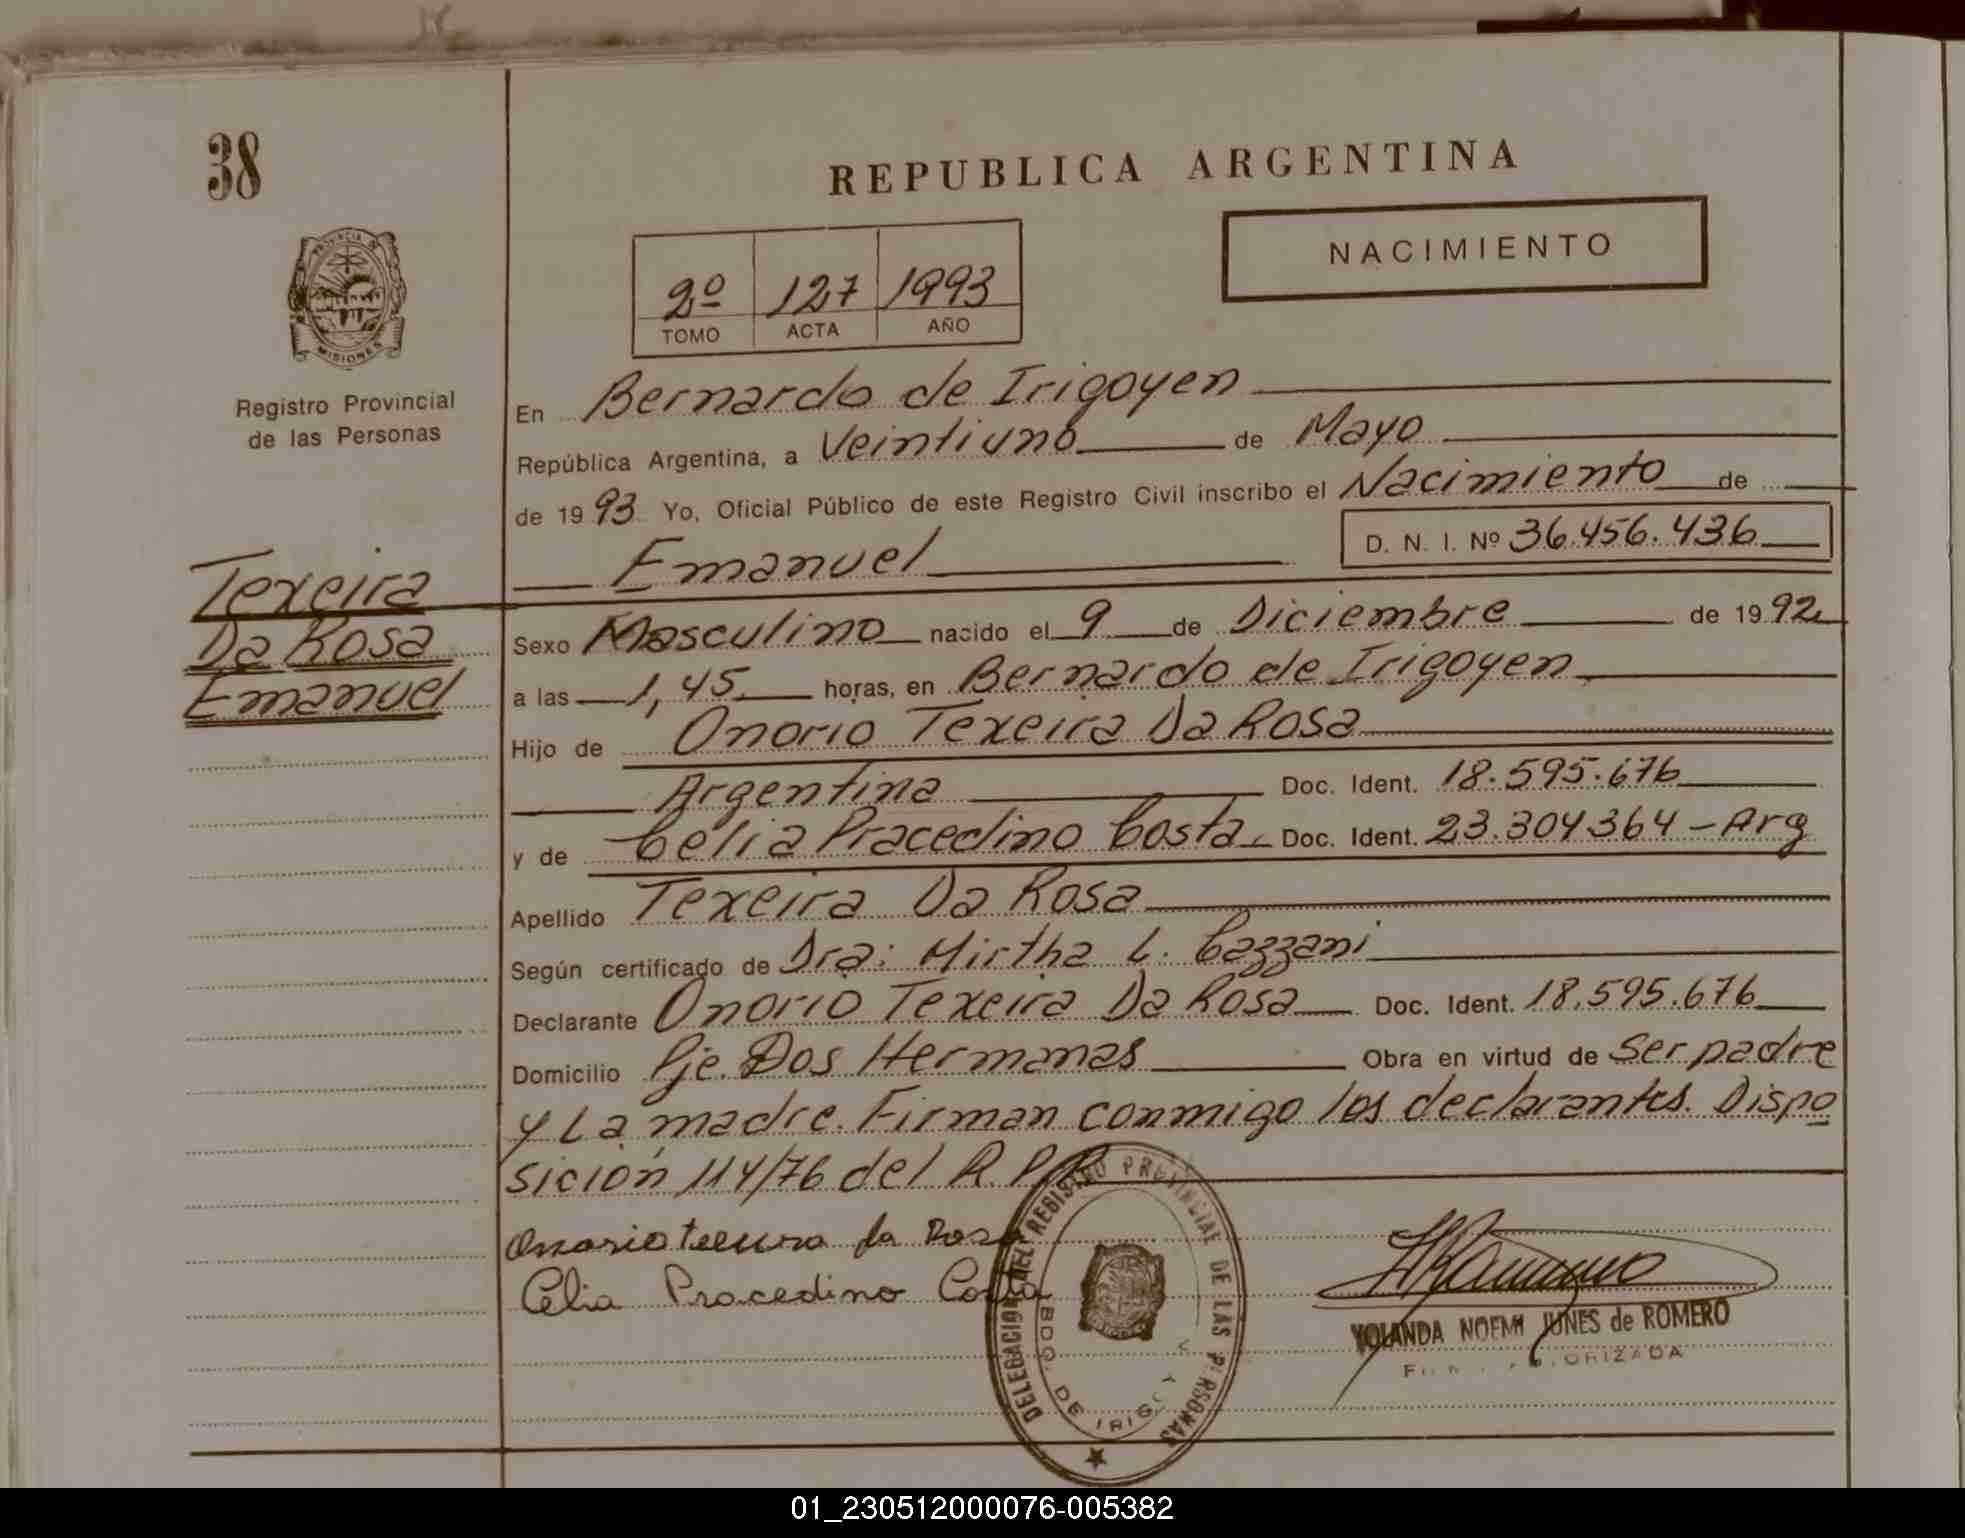 38
REPUBLICA ARGENTINA
NACIMIENTO
2º 127 1993
TOMO ACTA AÑO
PROVINCIA DE
MISIONES
Registro Provincial
de las Personas
Texeira
Da Rosa
Emanuel
En Bernardo de Irigoyen
República Argentina, a Veintiuno de Mayo
de 1993 Yo, Oficial Público de este Registro Civil inscribo el Nacimiento de
D. N. I. Nº 36.456.436
Emanuel
Sexo Masculino nacido el 9 de Diciembre de 1992
a las 1,45 horas, en Bernardo de Irigoyen
Hijo de Onorio Texeira Da Rosa
Argentina Doc. Ident. 18.595.676
y de Celia Pracedino Costa Doc. Ident. 23.304.364 - Arg
Apellido Texeira Da Rosa
Según certificado de Dra: Mirtha L. Cazzani
Declarante Onorio Texeira Da Rosa Doc. Ident. 18.595.676
Domicilio Pje. Dos Hermanas Obra en virtud de Ser padre
y La madre. Firman conmigo los declarantes. Dispo
sición 114/76 del R.P.P.
da Rosa
Celia Pracedino Costa
DELEGACION DEL REGISTRO PROVINCIAL DE LAS PERSONAS
BDO. DE IRIGOY
YOLANDA NOEMI JUNES de ROMERO
01_230512000076-005382